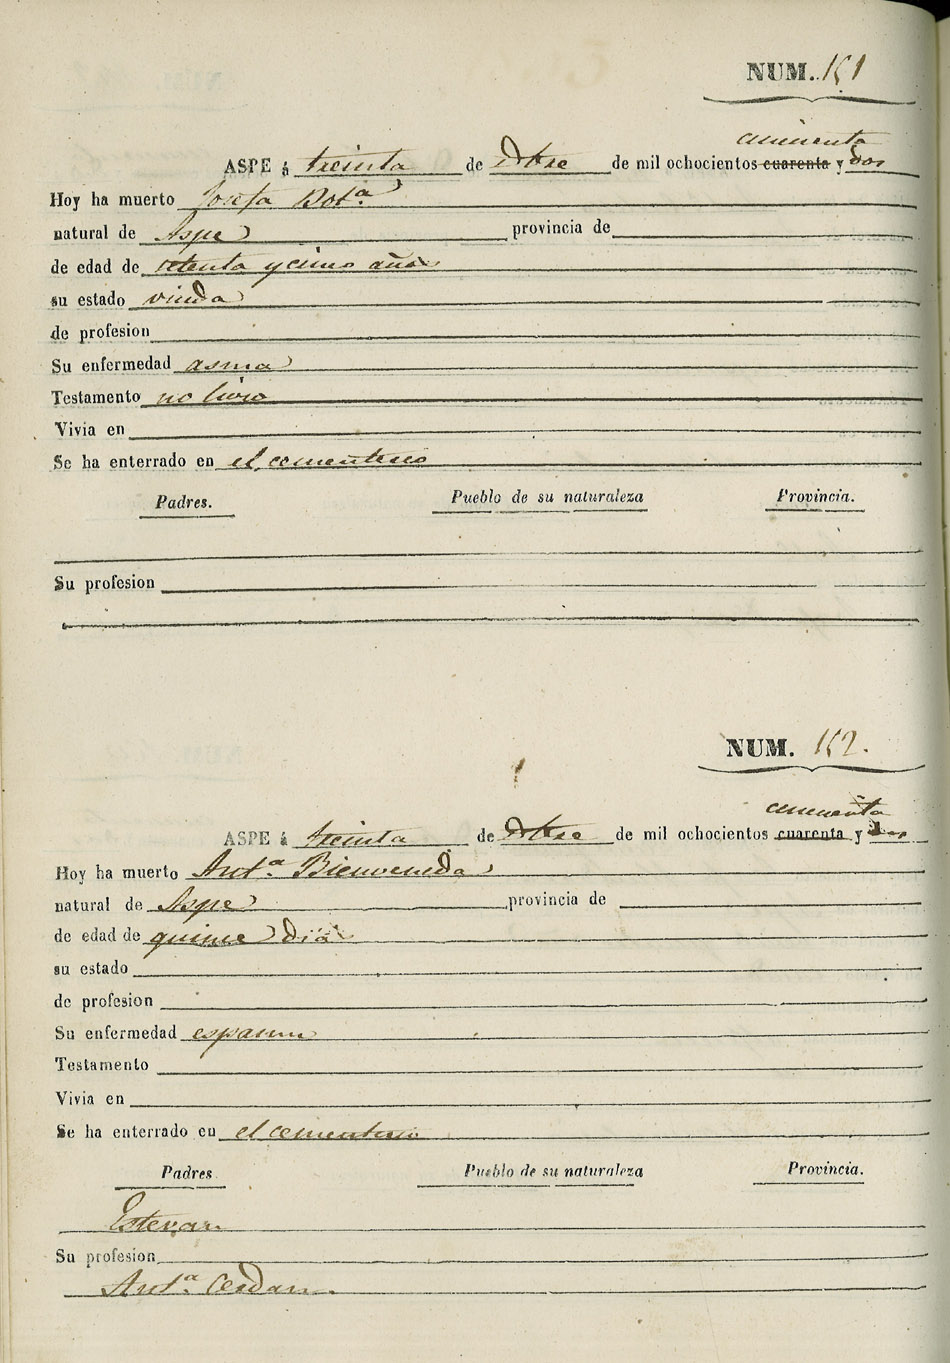 NUM. 151
cincuenta
ASPE á treinta de Dbre de mil ochocientos cuarenta y dos
Hoy ha muerto Josefa Bot.ª
natural de Aspe provincia de
de edad de setenta y cinco años
su estado viuda
de profesion
Su enfermedad asma
Testamento no hizo
Vivia en
Se ha enterrado en el cementerio
Padres. Pueblo de su naturaleza Provincia.
Su profesion
NUM. 152.
cincuenta
ASPE á treinta de Dbre de mil ochocientos cuarenta y dos
Hoy ha muerto Ant.ª Bienvenida
natural de Aspe provincia de
de edad de quince dias
su estado
de profesion
Su enfermedad espasmo
Testamento
Vivia en
Se ha enterrado en el cementerio
Padres Pueblo de su naturaleza Provincia.
Estevan
Su profesion
Ant.ª Cerdan